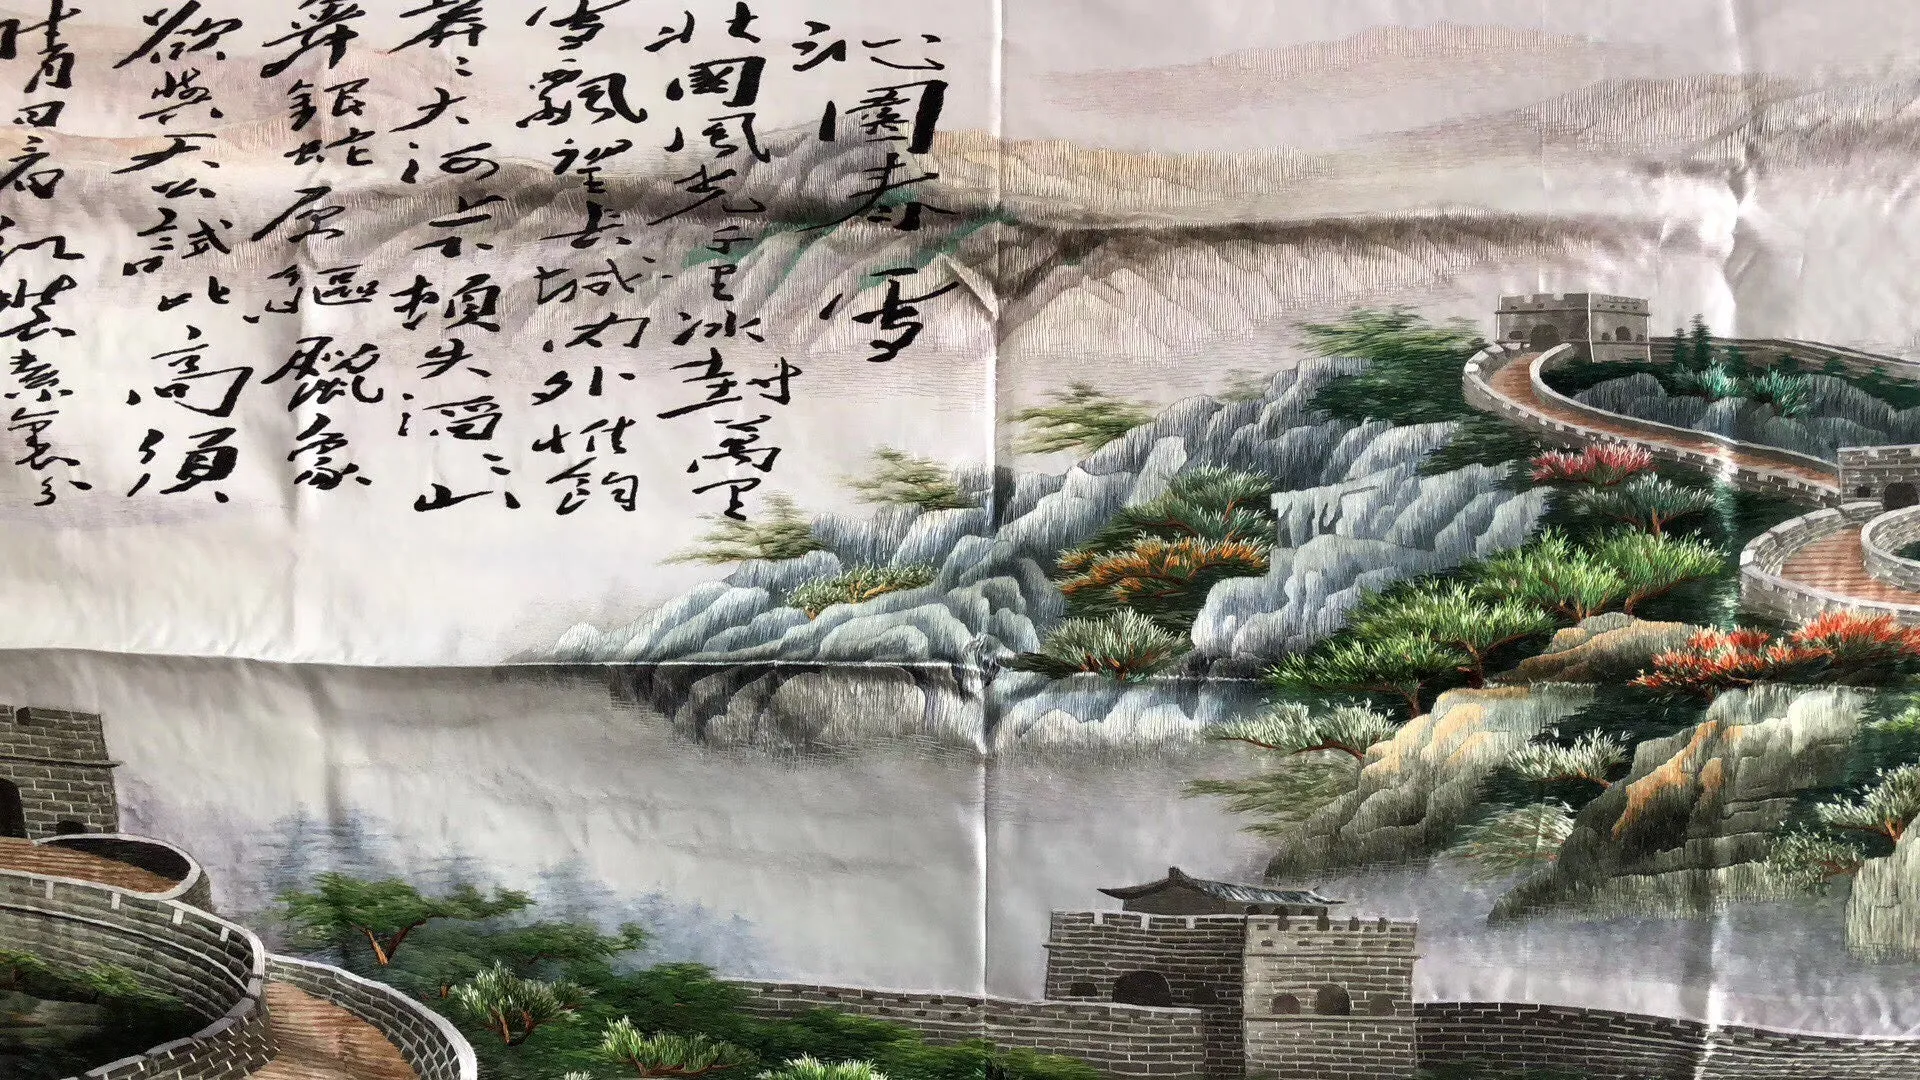 沁園春 雪
北國風光千里冰封萬里
雪飄望長城內外惟餘
莽々大河上下頓失滔々山
舞銀蛇原驅臘象
欲與天公試比高須
晴日看紅裝素裹分